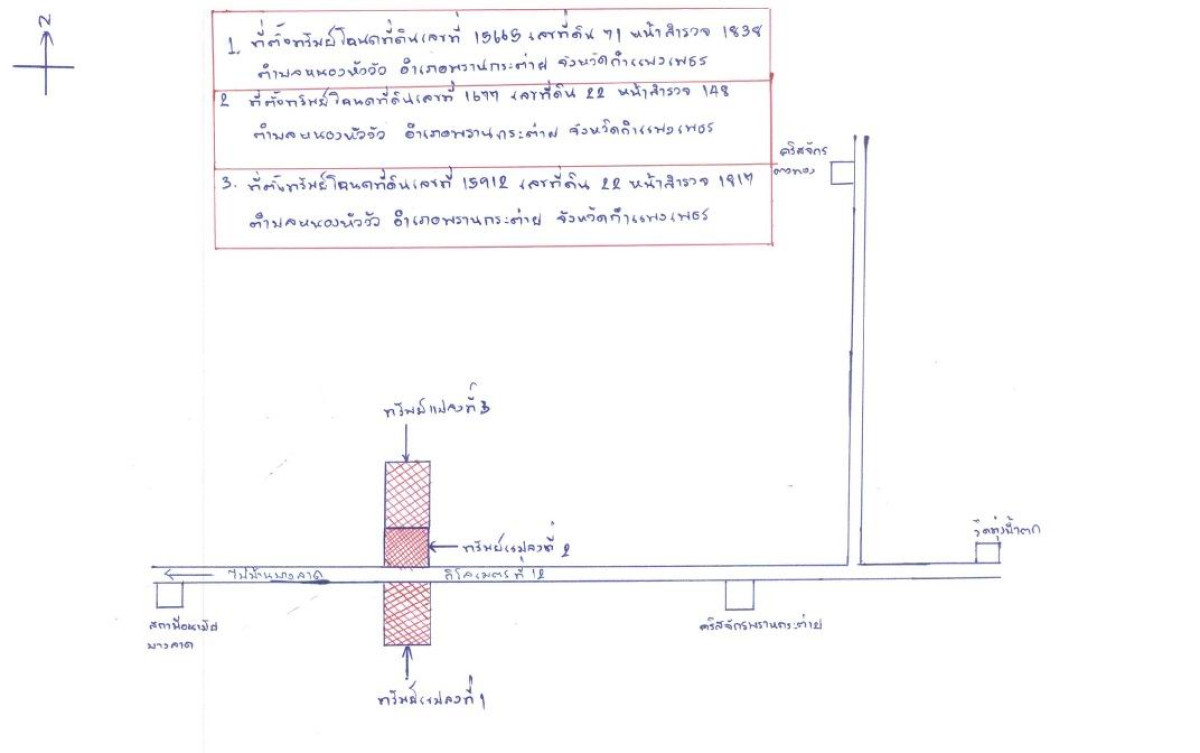 N
1. ที่ตั้งทรัพย์โฉนดที่ดินเลขที่ 15665 เลขที่ดิน 71 หน้าสำรวจ 1838
ตำบลหนองหัววัว อำเภอพรานกระต่าย จังหวัดกำแพงเพชร
2 ที่ตั้งทรัพย์โฉนดที่ดินเลขที่ 1677 เลขที่ดิน 22 หน้าสำรวจ 148
ตำบลหนองหัววัว อำเภอพรานกระต่าย จังหวัดกำแพงเพชร
3. ที่ตั้งทรัพย์โฉนดที่ดินเลขที่ 15912 เลขที่ดิน 22 หน้าสำรวจ 1817
ตำบลหนองหัววัว อำเภอพรานกระต่าย จังหวัดกำแพงเพชร
คริสจักร
ทรัพย์แปลงที่ 3
ทรัพย์แปลงที่ 2
วัดทุ่งน้ำตก
ไปบ้านบางลาด
กิโลเมตรที่ 12
สถานีอนามัย
บางลาด
คริสจักรพรานกระต่าย
ทรัพย์แปลงที่ 1